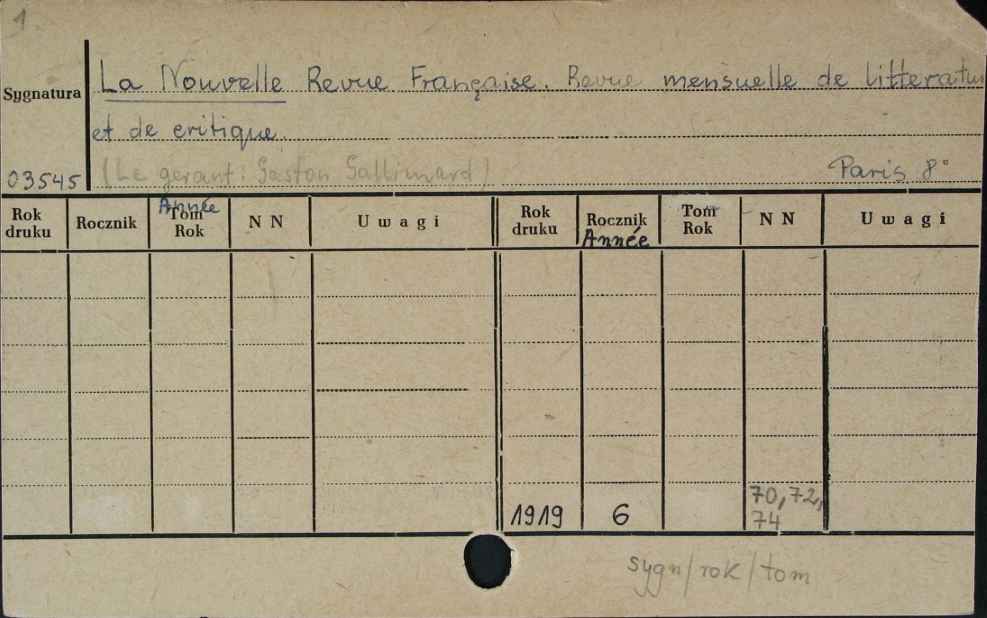 1
Sygnatura
La Nouvelle Revue Française. Revue mensuelle de litteratu
et de critique.
03545
(Le gerant: Gaston Gallimard)
Paris 8°
Rok druku
Rocznik
Année
Tom Rok
NN
Uwagi
Rok druku
Rocznik
Année
Tom Rok
NN
Uwagi
1919 6 70, 72,
74
sygn/rok/tom